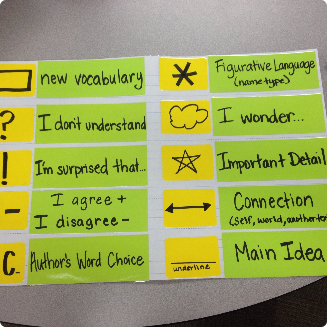 new vocabulary
? I don't understand
! I'm surprised that...
- I agree +
I disagree -
C Author's Word Choice
* Figurative Language
(name type)
I wonder...
Important Detail
Connection
(self, world,
underline Main Idea